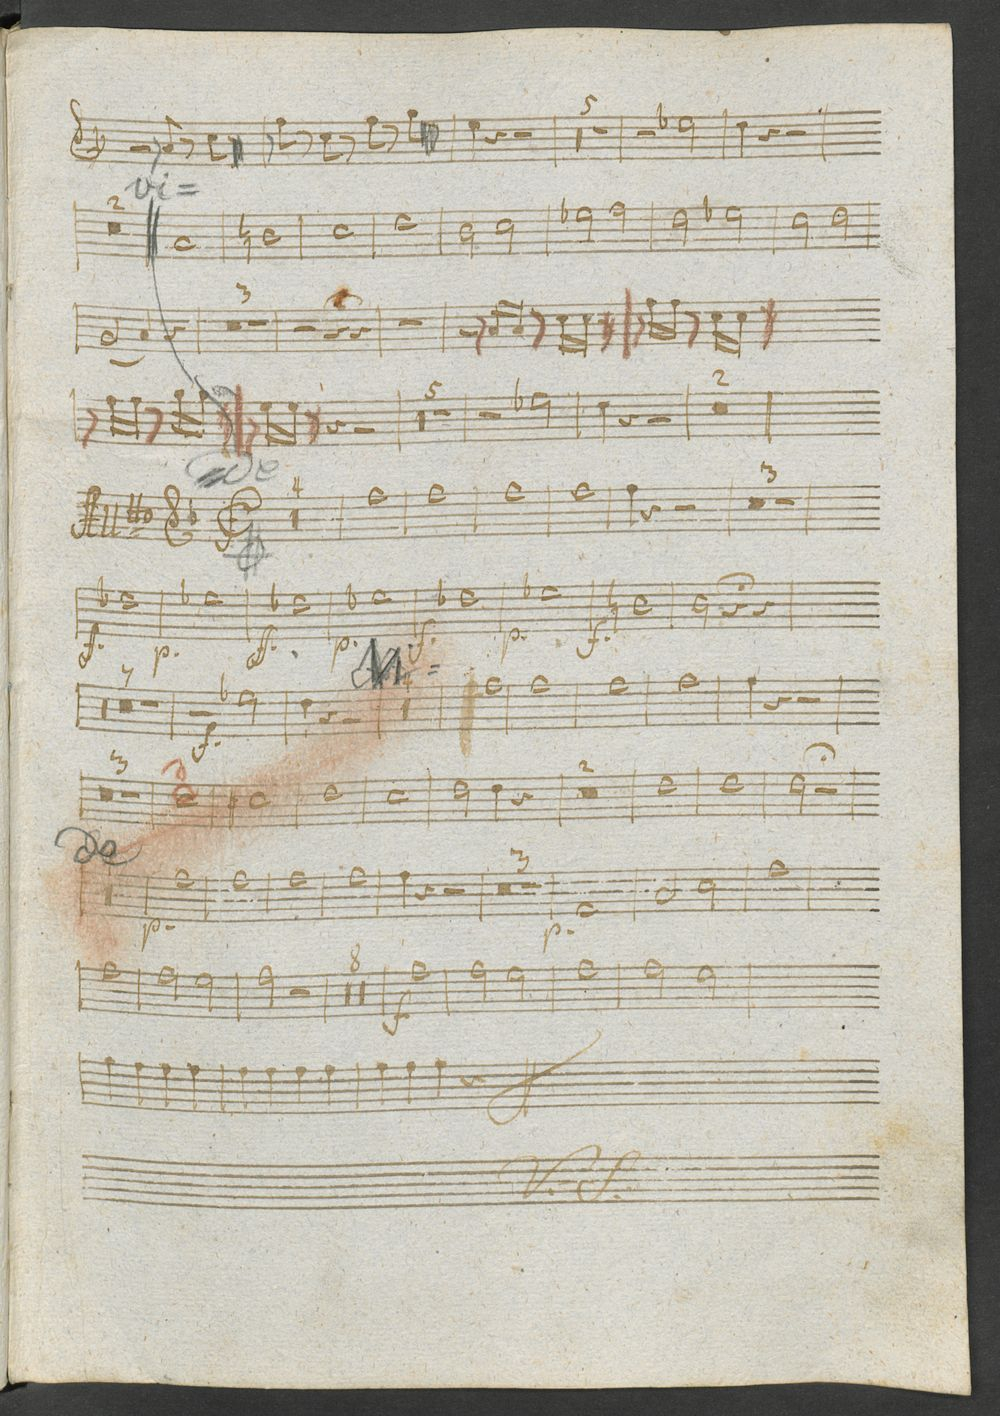 5
vi=
2
3
5 2
De
All.tto 4 3
f. p. f. p. f. p. f.
7 Vi=
f.
3 2
De
3
p. p.
8
f
V. S.